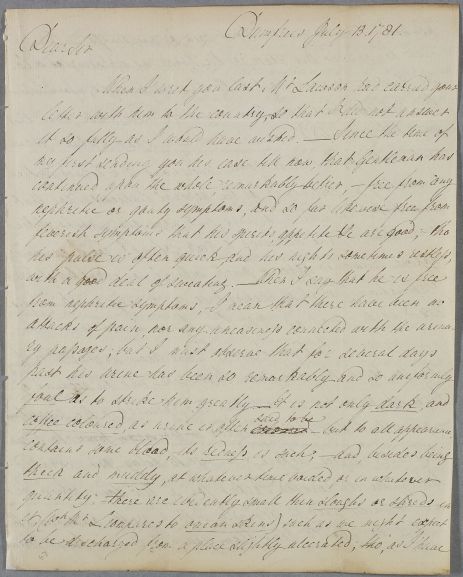 Dumfries July 13. 1781.
Dear Sir
When I wrote you last, Mr Lawson had carried your
letter with him to the country, so that I did not answer
it so fully as I would have wished. — Since the time of
my first sending you his case till now, that Gentleman has
continued upon the whole remarkably better, — free from any
nephritic or gouty symptoms, and so far likewise free from
feverish symptoms that his spirits, appetite &c are good; tho
his pulse is often quick and his nights sometimes restless,
with a good deal of sweating. — When I say that he is free
from nephritic symptoms, I mean that there have been no
attacks of pain nor any uneasiness connected with the urina
ry passages, but I must observe that for several days
past his urine has been so remarkably and so uniformly
foul as to strike him greatly — It is not only dark and
said to be
coffee coloured as urine is often — but to all appearance
contains some blood, its redness is such; — and besides being
thick and muddy, at whatever time voided or in whatever
quantity; there are evidently small thin sloughs or shreds in
it, (Mr L compares to onion skins) such as we might expect
to be discharged from a place slightly ulcerated; tho', as I have